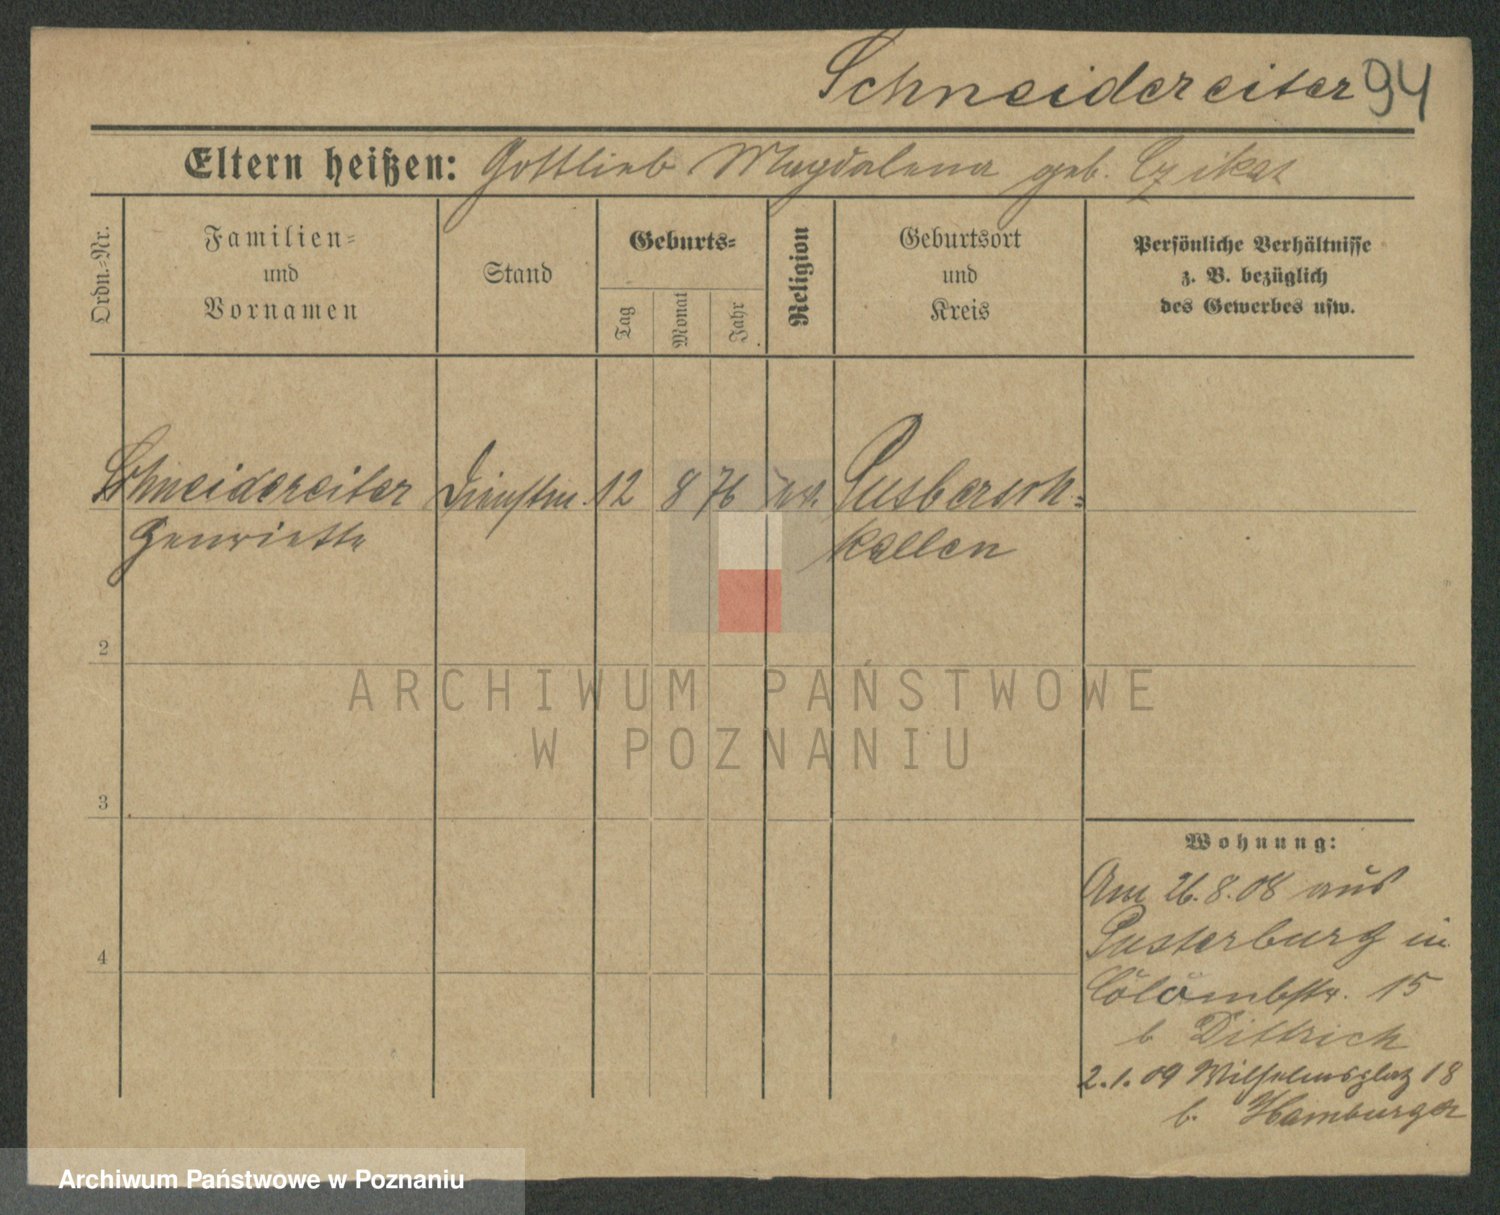 Schneidereiter 94
Eltern heißen: Gottlieb Magdalena geb. Czikat
Ordn.-Nr.
Familien-
und
Vornamen
Stand
Geburts-
Tag
Monat
Jahr
Religion
Geburtsort
und
Kreis
Persönliche Verhältnisse
z. B. bezüglich
des Gewerbes usw.
Schneidereiter Dienstm. 12 8 76
Henriette kallen
2
3
4
Wohnung:
Am 26.8.08 aus
Insterburg in
Colombstr. 15
b Dittrich
2.1.09 Wilhelmsplatz 18
b. Hamburger
ARCHIWUM PAŃSTWOWE
W POZNANIU
Archiwum Państwowe w Poznaniu